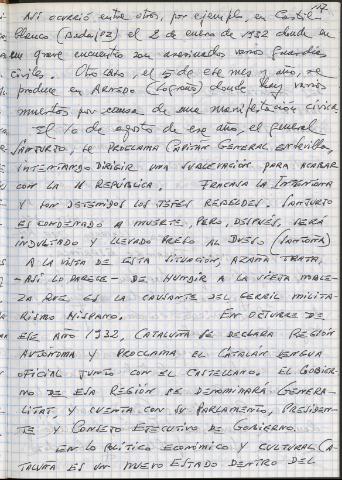 117
Así ocurrió, entre otros, por ejemplo, en Castil-
blanco (Badajoz) el 2 de enero de 1932 donde en
un grave encuentro son asesinados varios guardias
civiles. Otro caso, el 5 de ese mes y año, se
produce en ARNEDO (Logroño) donde hay varios
muertos por causa de una manifestación cívica
El 10 de agosto de ese año, el general
SANJURJO, se PROCLAMA CAPITAN GENERAL en Sevilla,
INTENTANDO DIRIGIR UNA SUBLEVACIÓN PARA ACABAR
CON LA II REPÚBLICA. FRACASA LA INTENTONA
Y SON DETENIDOS LOS JEFES REBELDES. SANJURJO
ES CONDENADO A MUERTE, PERO, DESPUÉS, SERÁ
INDULTADO Y LLEVADO PRESO AL DUESO (SANTOÑA)
A LA VISTA DE ESTA SITUACIÓN, AZAÑA TRATA,
-ASÍ LO PARECE- DE HUNDIR A LA VIEJA NOBLE-
ZA QUE ES LA CAUSANTE DEL GERMIL MILITA-
RISMO HISPANO. EN OCTUBRE DE
ESE AÑO 1932, CATALUÑA SE DECLARA REGIÓN
AUTÓNOMA Y PROCLAMA EL CATALÁN LENGUA
OFICIAL JUNTO CON EL CASTELLANO. EL GOBIER-
NO DE ESA REGIÓN SE DENOMINARÁ GENERA-
LITAT, Y CUENTA CON SU PARLAMENTO, PRESIDEN-
TE Y CONSEJO EJECUTIVO DE GOBIERNO.
EN LO POLÍTICO ECONÓMICO Y CULTURAL CA-
TALUÑA ES UN NUEVO ESTADO DENTRO DEL